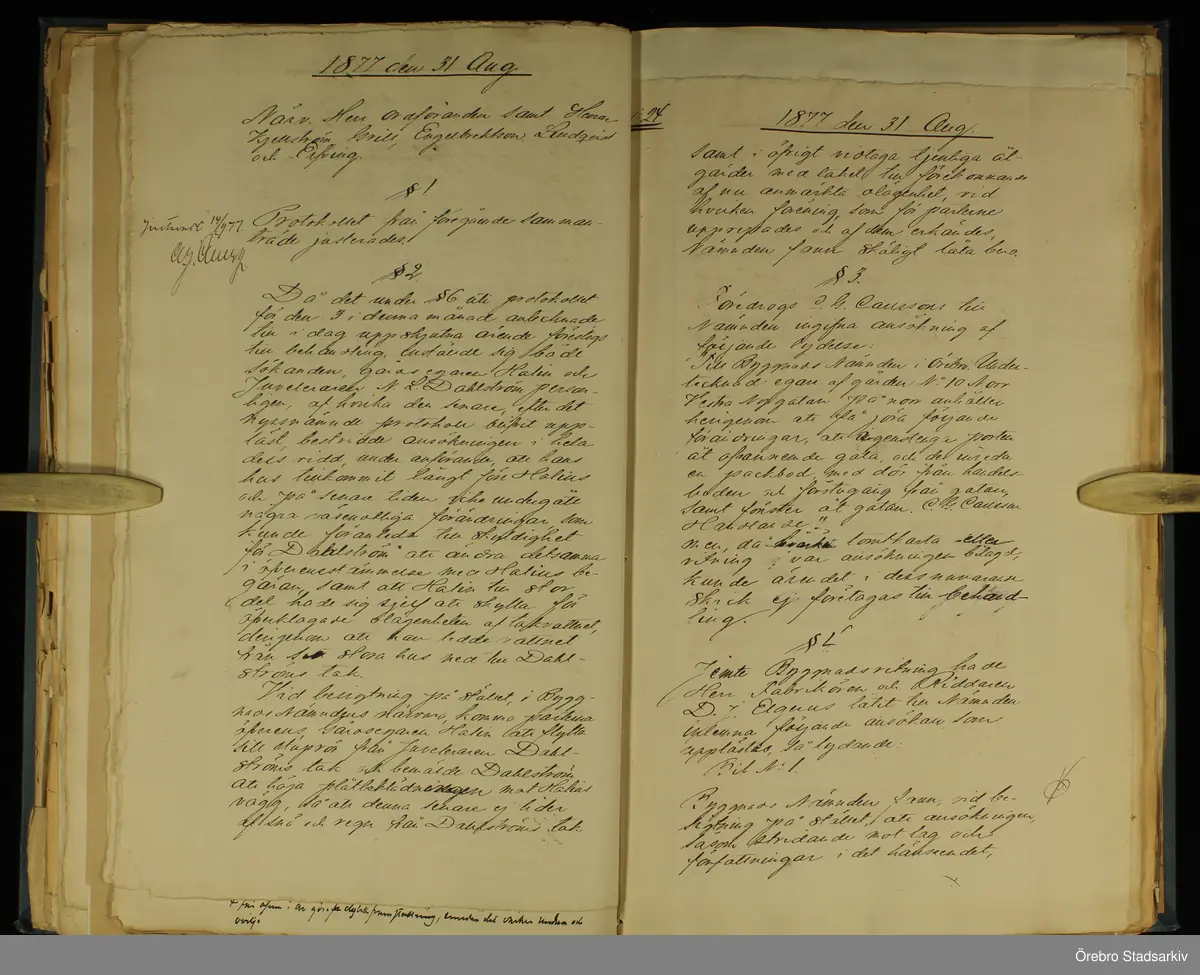 1877 den 31 Aug.
Närv. Herr Ordföranden samt Herrar
Kjellström, Grill, Engelbrektson, Lindqvist
och Elfving.
§ 1
Protokollet från föregående samman-
träde justerades.
Justeradt 14/9 77.
§ 2
Då det under § 6 uti protokollet
för den 3 i denna månad antecknade
till i dag uppskjutna ärende föredrogs
till behandling, instälde sig både
sökanden, Gårdsegaren Hatin och
Juveleraren N. L. Dahlström person-
ligen, af hvilka den senare, efter det
nyssnämnde protokoll blifvit upp-
läst bestridde ansökningen i hela
dess vidd, under anförande, att hans
hus tillkommit långt före Hatins
och på senare tiden icke undergått
några väsendtliga förändringar, som
kunde föranleda till skyldighet
för Dahlström att ändra detsamma
i öfverensstämmelse med Hatins be-
gäran, samt att Hatin till stor
del hade sig sjelf att skylla för
öfverklagade olägenheten af takvattnet,
derigenom att han ledde vattnet
från sitt stora hus ned till Dahl-
ströms tak.
Vid besigtning på stället, i Bygg-
nads Nämndens närvaro, komma parterna
öfverens, Gårdsegaren Hatin låta flytta
sitt stuprör från Juveleraren Dahl-
ströms tak och bemälde Dahlström
att höja plåtbeklädningen mot Hatins
vägg, så att denna senare ej lider
af snö och regn från Dahlströms tak
24
1877 den 31 Aug.
samt i öfrigt vidtaga tjenliga åt-
gärder med taket till förekommande
af nu anmärkta olägenhet, vid
hvilken förening, som för parterne
upprepades och af dem erkändes,
Nämnden fann skäligt låta bero.
§ 3.
Föredrogs C. G. Carlssons till
Nämnden ingifna ansökning af
följande lydelse:
"Till Byggnads Nämnden i Örebro. Under-
tecknad egare af gården No 10 Norr
Vestra Nygatan på norr anhåller
herigenom att få göra följande
förändringar, att igenlägga porten
åt ofvannemde gata, och der inreda
en packbod, med dörr från handels-
boden och förstugång från gatan,
samt fönster åt gatan. C. G. Carlsson
Handlande."
men, då hvarken tomtkarta eller
ritning var ansökningen bilagd,
kunde ärendet i dess nuvarande
skick ej företagas till behand-
ling.
§ 4
Jemte Byggnadsritning hade
Herr Fabrikören och Riddaren
D. J. Elgérus låtit till Nämnden
inlemna följande ansökan som
upplästes, så lydande:
Bil. No 1.
Byggnads Nämnden fann, vid be-
sigtning på stället, att ansökningen,
såsom stridande mot lag och
författningar i det hänseendet,
Örebro Stadsarkiv